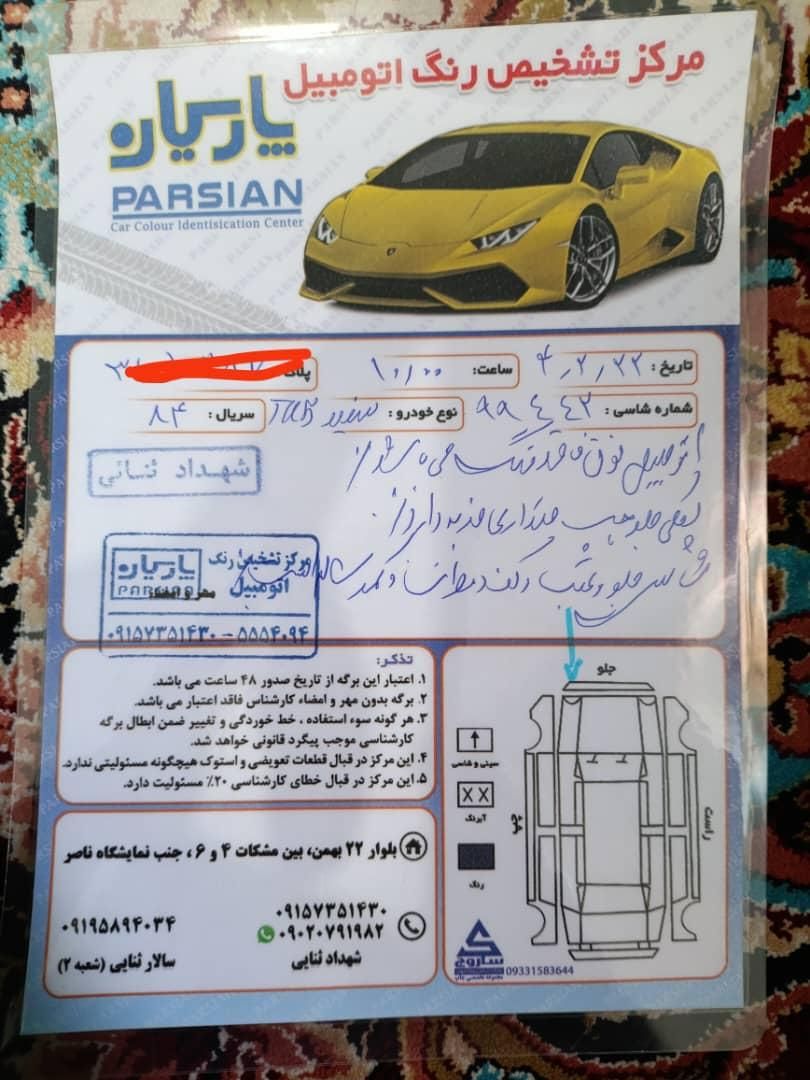 مرکز تشخیص رنگ اتومبیل
پارسیان
PARSIAN
Car Colour Identisication Center
تاریخ : ۴,۲,۲۲
ساعت: ۱۰,۰۰
پلاک
شماره شاسی : ۹۹۴۴۲
نوع خودرو : سفید
سریال : ۸۴
اتومبیل فوق فاقد رنگ می باشد
شهداد ثنائی
مرکز تشخیص رنگ
اتومبیل
پارسیان
PARSIAN
مهر و امضاء
۰۹۱۵۷۳۵۱۴۳۰ - ۵۵۵۴۰۹۴
تذکر:
۱. اعتبار این برگه از تاریخ صدور ۴۸ ساعت می باشد.
۲. برگه بدون مهر و امضاء کارشناس فاقد اعتبار می باشد.
۳. هر گونه سوء استفاده ، خط خوردگی و تغییر ضمن ابطال برگه
کارشناسی موجب پیگرد قانونی خواهد شد.
۴. این مرکز در قبال قطعات تعویضی و استوک هیچگونه مسئولیتی ندارد.
۵. این مرکز در قبال خطای کارشناسی ۲۰٪ مسئولیت دارد.
جلو
سینی و شاسی
X X
آبرنگ
رنگ
چپ
راست
ساروج
09331583644
بلوار ۲۲ بهمن، بین مشکات ۴ و ۶ ، جنب نمایشگاه ناصر
۰۹۱۵۷۳۵۱۴۳۰
۰۹۰۲۰۷۹۱۹۸۲
شهداد ثنایی
۰۹۱۹۵۸۹۴۰۳۴
سالار ثنایی (شعبه ۲)